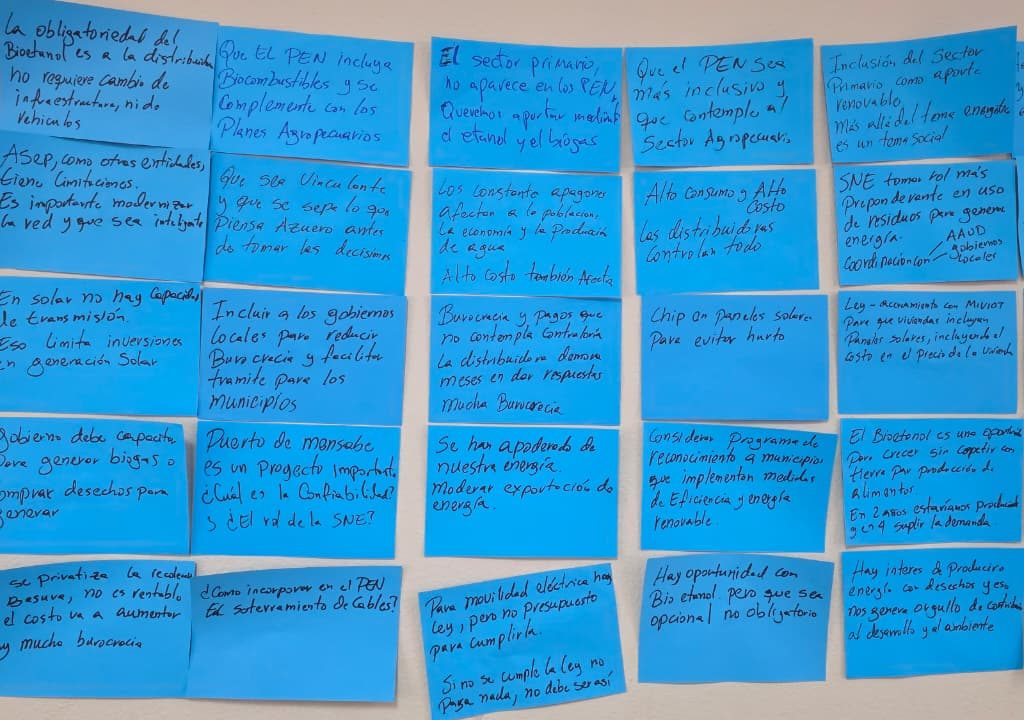 La obligatoriedad del
Bioetanol es a la distribuidora
no requiere cambio de
infraestructura, ni de
vehiculos
Que EL PEN incluya
Biocombustibles y se
Complemente con los
Planes Agropecuarios
El sector primario,
no aparece en los PEN,
Queremos aportar mediante
el etanol y el biogas
Que el PEN sea
más inclusivo y
que contemple al
Sector Agropecuario
Inclusión del Sector
Primario como aporte
renovable,
Más allá del tema energético
es un tema social
ASEP, como otras entidades,
tiene limitaciones.
Es importante modernizar
la red y que sea inteligente
Que sea Vinculante
y que se sepa lo que
Piensa Azuero antes
de tomar las decisiones
Los constante apagones
afectan a la población,
la economía y la Producción
de agua
Alto Costo también Afecta
Alto Consumo y Alto
Costo
Las distribuidoras
Controlan todo
SNE tomar rol más
Preponderante en uso
de residuos para generar
energía.
Coordinación con AAUD
gobiernos
locales
En solar no hay Capacidad
de transmisión.
Eso limita inversiones
en generación Solar
Incluir a los gobiernos
Locales para reducir
Burocracia y facilitar
tramite para los
municipios
Burocracia y pagos que
no contempla Contraloría
La distribuidora demora
meses en dar respuestas
Mucha Burocracia
Chip en Paneles solares
Para evitar hurto
Ley - acercamiento con MIVIOT
Para que viviendas incluyan
Paneles solares, incluyendo el
Costo en el Precio de la Vivienda
Gobierno debe capacitar
para generar biogas o
comprar desechos para
generar
Puerto de mensabe
es un Proyecto Importante
¿Cuál es la Confiabilidad?
y ¿El rol de la SNE?
Se han apoderado de
nuestra energía.
Moderar exportación de
energía.
Considerar Programa de
reconocimiento a municipios
que implementen medidas
de Eficiencia y energía
renovable.
El Bioetanol es una oportunidad
Para crecer sin competir con
tierra par producción de
alimentos
En 2 años estaríamos produciendo
y en 4 suplir la demanda.
se privatiza la recolec
Basura, no es rentable
el costo va a aumentar
y mucho burocracia
¿Como incorporar en el PEN
El soterramiento de Cables?
Para movilidad eléctrica hay
Ley, pero no presupuesto
para cumplirla.
Si no se cumple la Ley no
pasa nada, no debe ser así
Hay oportunidad con
Bio etanol pero que sea
opcional no obligatorio
Hay interes de Producir
energía con desechos y eso
nos genera orgullo de contribuir
al desarrollo y al ambiente